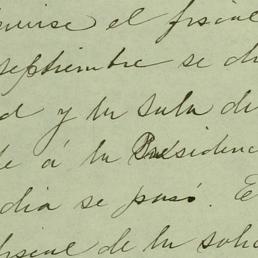 el fiscal
septiembre se di
d y la sala de
de á la Presidenc
dia se pasó. E
fiscal de la solic